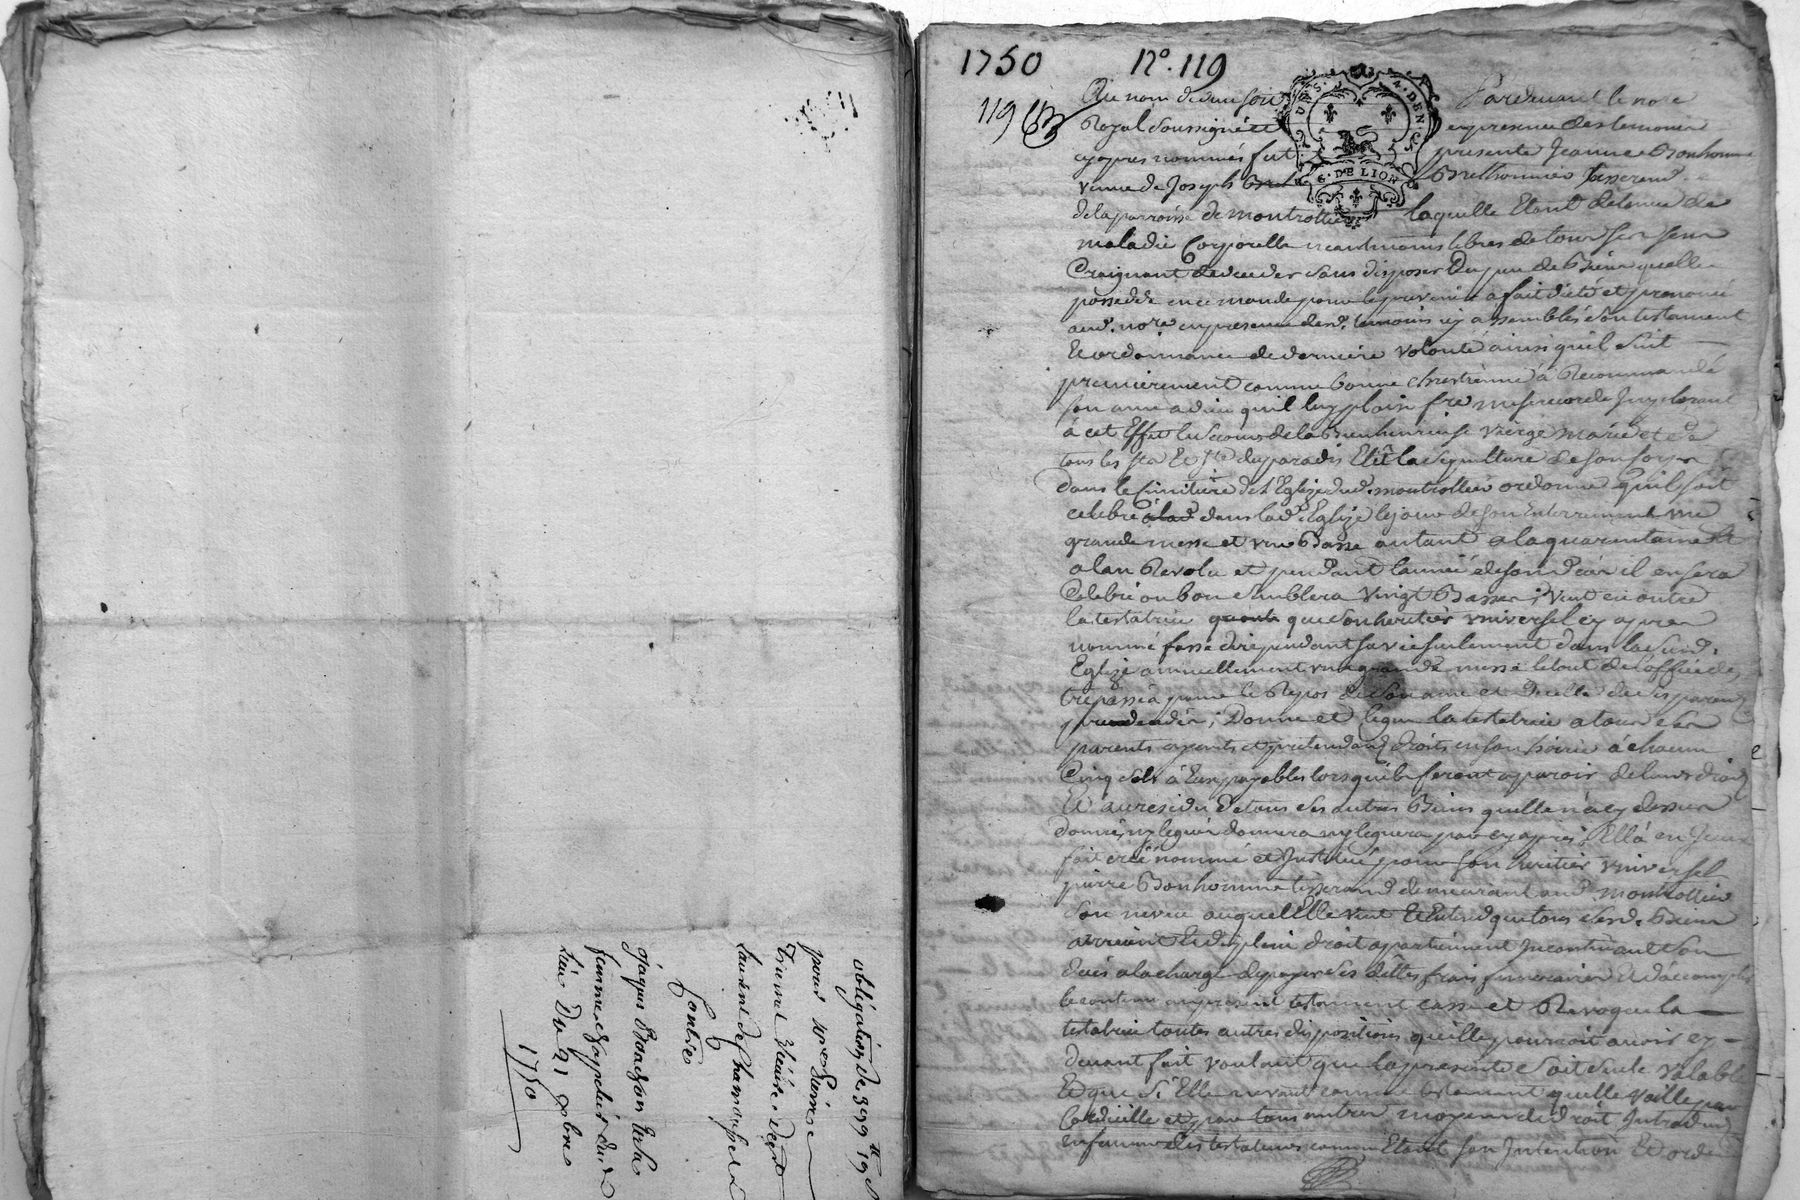 obligation de 399ᵗᵗ 19 s
pour sʳ Pierre
laurent de Chamousset
Contre
Jaques
femme
lieu Du 21 xbre
1750
1750 N°. 119
119
Au nom de dieu soit Pardevant le nore
Royal soussigné et en presence des temoins
cy apres nommés fut presente Jeanne Bonhomme
veuve de Joseph Brelhonnier tisserand
de la parroisse de montrottier laquelle Etant detenue de
maladie Corporelle neantmoins libres de tous ses sens
Craignant deceder sans disposer Du peu de Biens quelle
possede en ce monde pour le prevenir a fait dicté et prononcé
aud. nore en presence desd. temoins icy assemblés son testament
et ordonnance de derniere volonté ainsi quil suit
premierement comme bonne chrestienne à Recommandé
son ame a dieu quil luy plaise fre misericorde Implorant
à cet Effet le secours de la Bienheureuse vierge marie et de
tous les sts Et stes du paradis Elit la sepulture de son corps
dans le cimitiere de l'Eglise dud. montrottier ordonne quil soit
celebré dans lad. Eglise le jour de son enterrement une
grande messe et une Basse autant a la quarantaine et
a lan Revolu et pendant l'année de son deces il en sera
Celebré ou bon semblera vingt Basses; veut en outre
la testatrice que son heritier universel cy apres
nommé fasse dire pendant sa vie seulement dans la susd.
Eglise annuellement une grande messe le tout de l'office des
trepassés pour le Repos de son ame et de celle de ses parens
; Donne et legue la testatrice a tous ses
parents ayants et pretendans droits en son hoirie à chacun
Cinq sols à Eux payables lorsqu'ils feront aparoir de leurs droits
Et au residu de tous ses autres Biens quelle n'a cy dessus
donné, ny legué donnera ny leguera par cy apres; Ell'à en Iceux
fait creé nommé et Institué pour son heritier universel
pierre Bonhomme tisserand demeurant aud. montrottier
son neveu auquel Elle veut Et Entend que tous sesd. Biens
arrivent Et de plein droit apartiennent Incontinant son
deces a la charge de payer ses dettes frais funeraires Et d'accomplir
le contenu au present testament casse et Revoque la
testatrice toutes autres dispositions quelle pourroit avoir cy
devant fait voulant que la presente soit seule valable
Et que si Elle ne vaut comme testament quelle vaille par
Codicille et par tous autres moyens de droit Introduits
en faveur des testateurs comm'Etant son Intention Et ordre